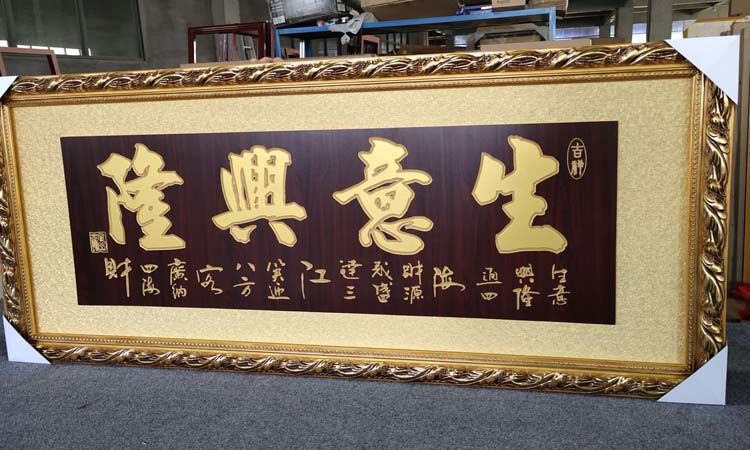 吉祥
生意興隆
生意興隆通四海財源茂盛達三江笑迎八方客廣納四海財